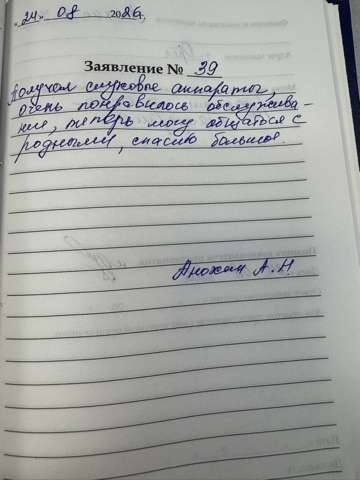 "24" 08 2026 г.
Заявление № 39
Получал слуховые аппараты,
очень понравилось обслужива-
ние, теперь могу общаться с
родными, спасибо большое.
Анохин А.Н